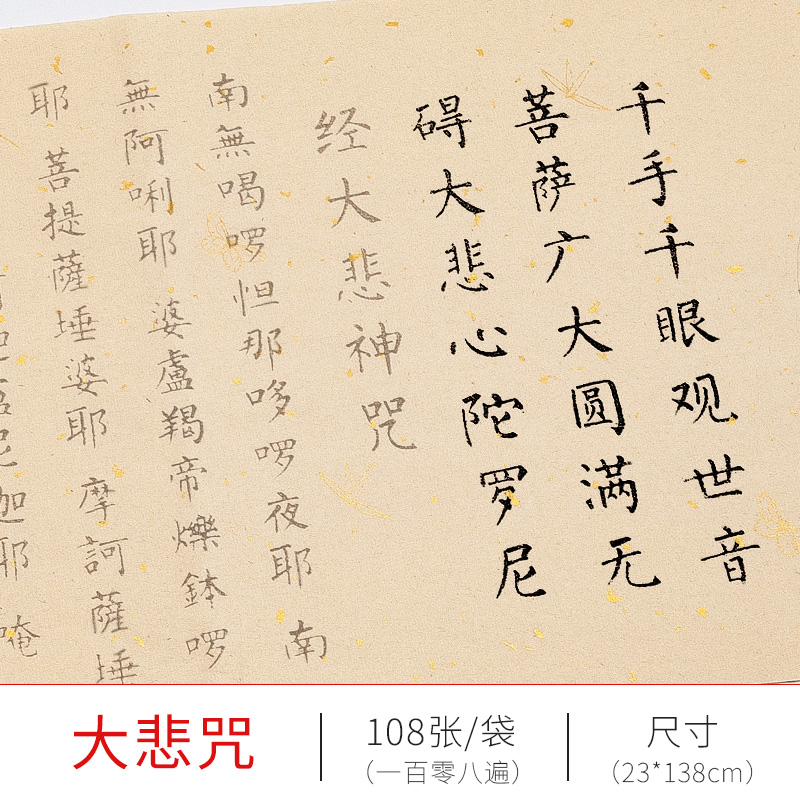 千手千眼观世音
菩萨广大圆满无
碍大悲心陀罗尼
经大悲神咒
南無喝啰怛那哆啰夜耶 南
無阿唎耶 婆盧羯帝爍鉢啰
耶 菩提薩埵婆耶 摩訶薩埵
尼迦耶 唵
大悲咒
108张/袋
(一百零八遍)
尺寸
(23*138cm)